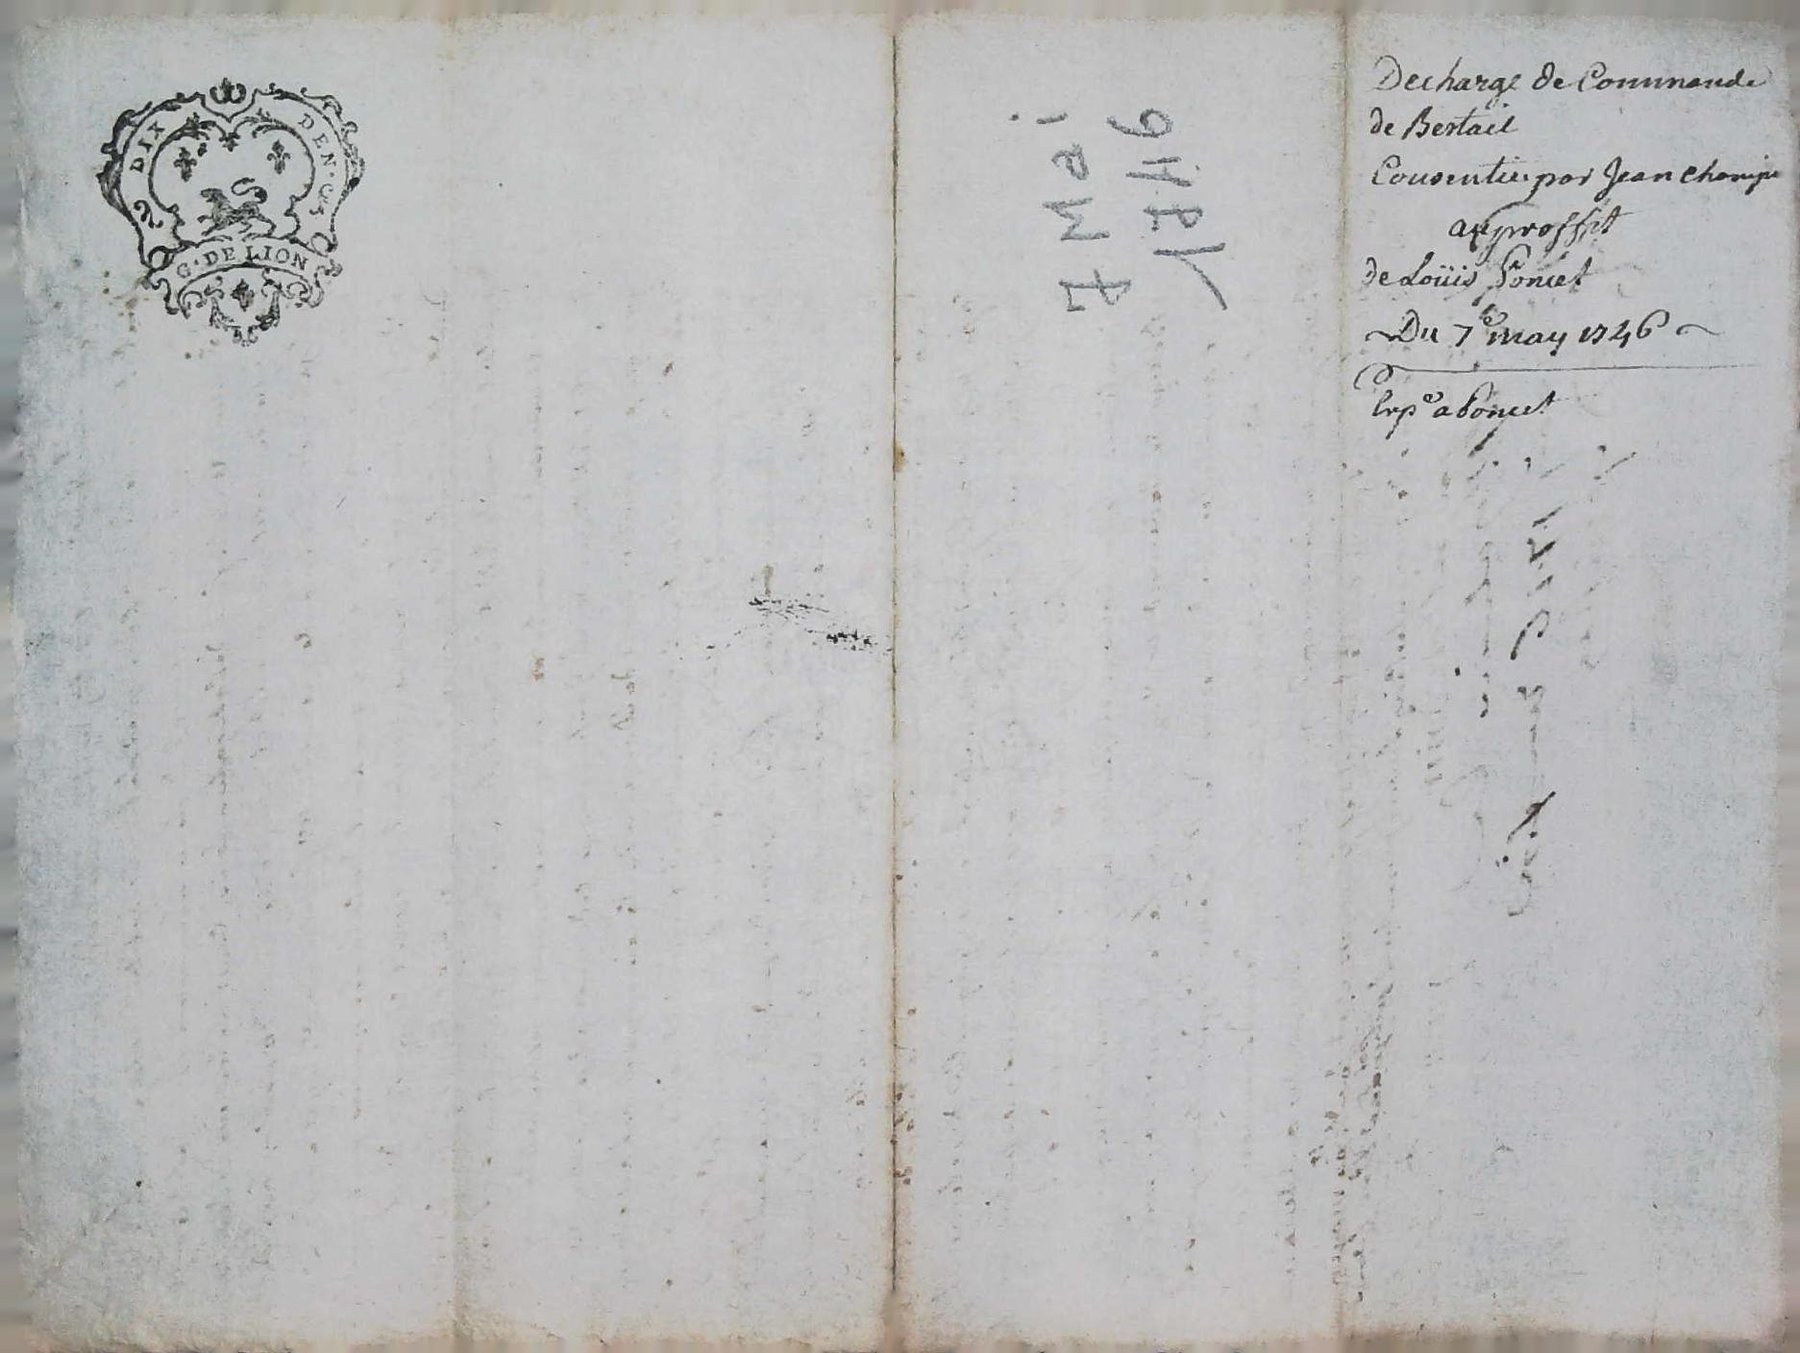 DIX DEN.ers
G. DE LION
7 Mai
1746
Decharge de Commande
de Bestail
Consentie par Jean Champ
au proffit
de Loüis Poncet
Du 7e may 1746
Exp.e a Poncet